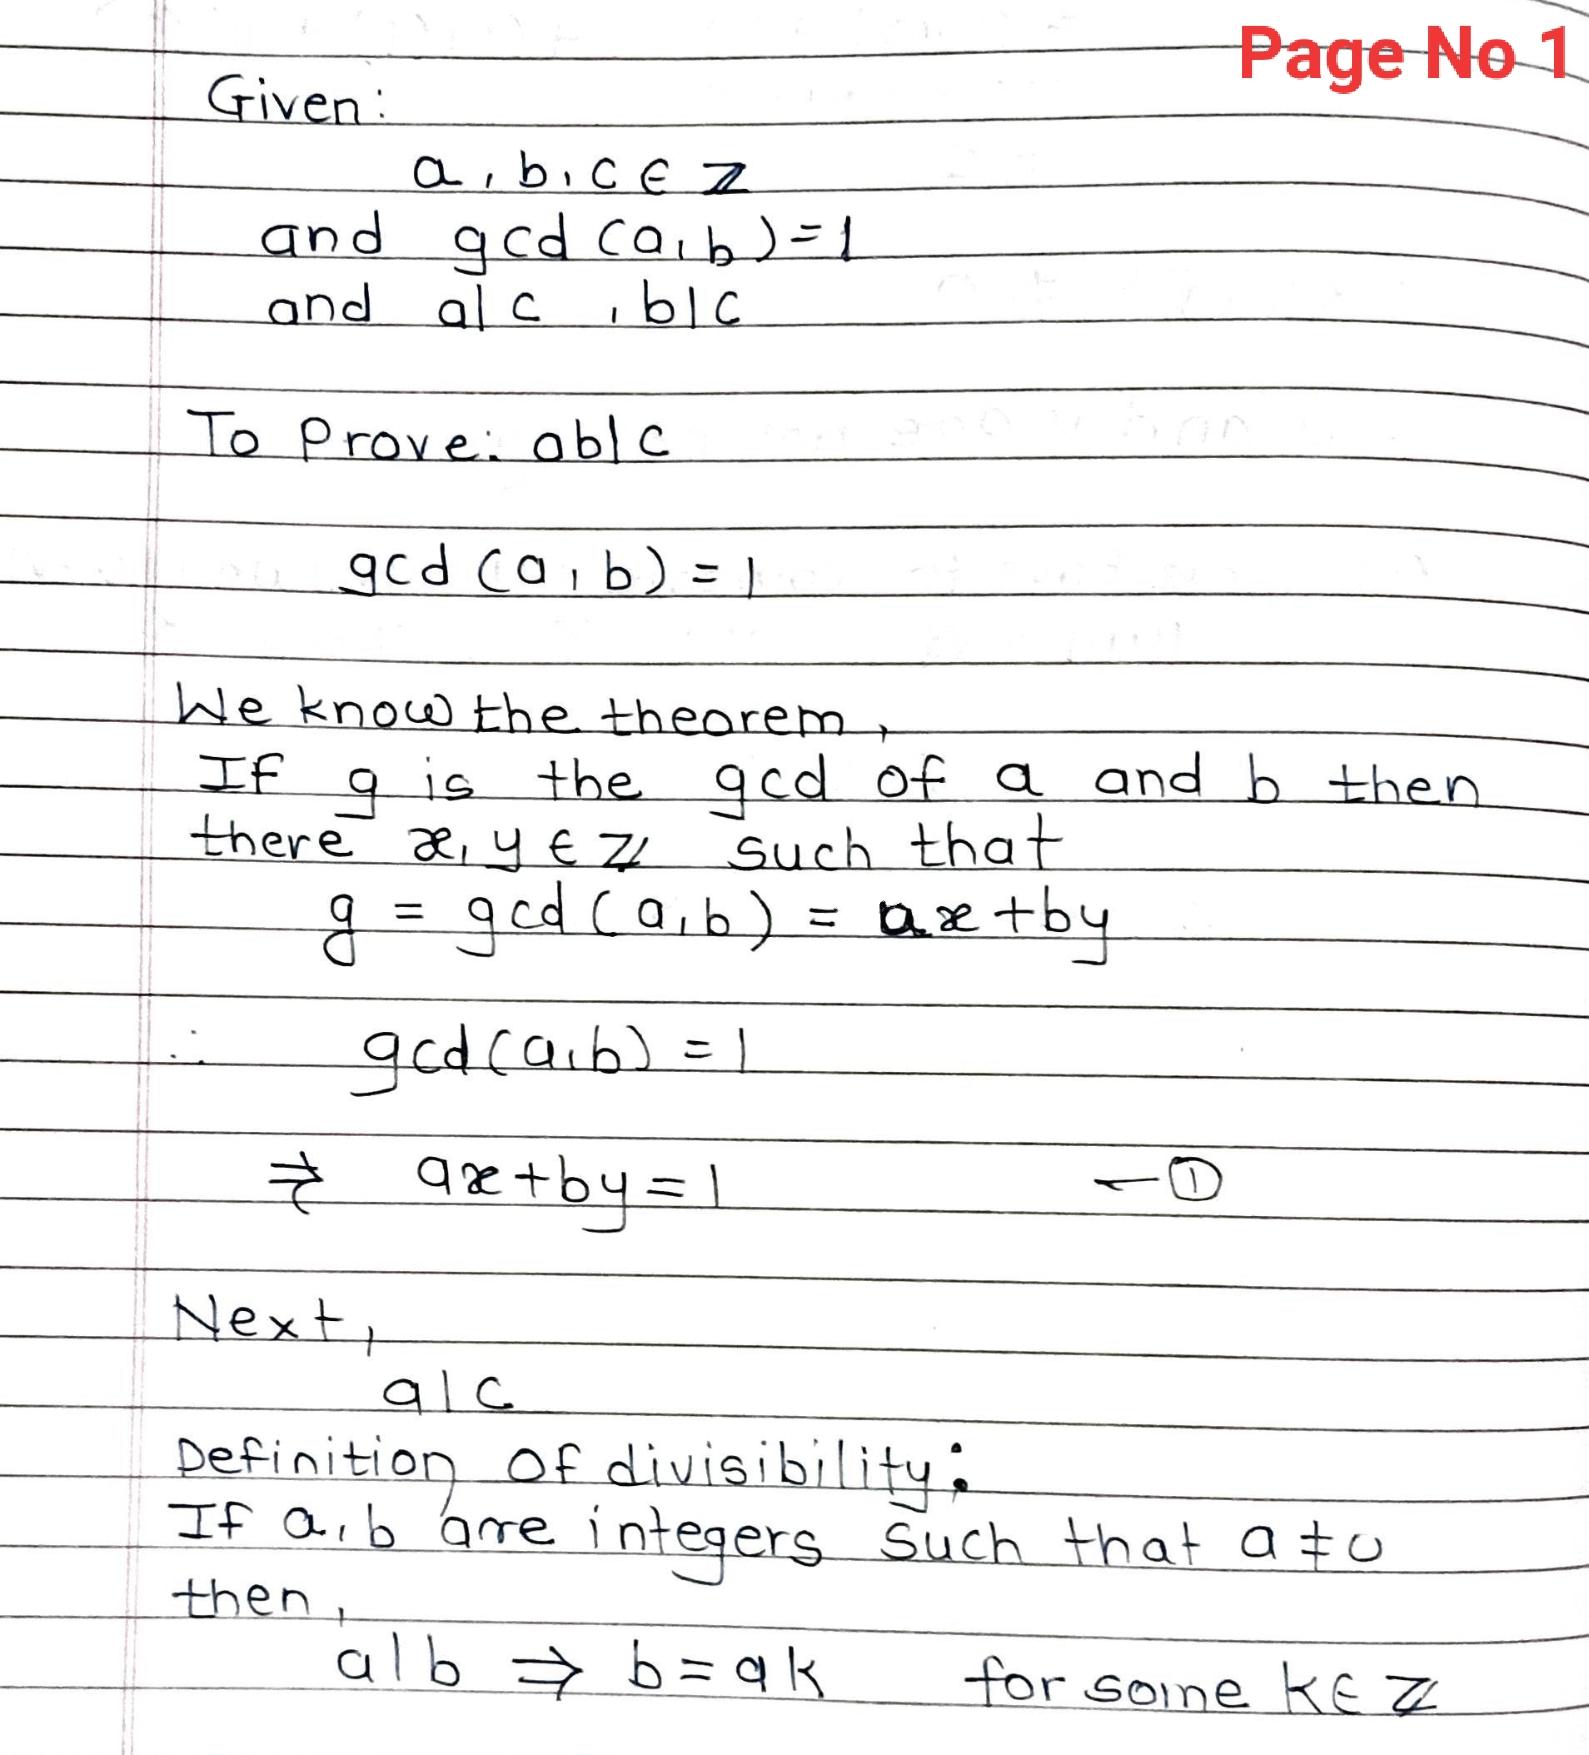 Page No 1
Given:
a, b, c ∈ ℤ
and gcd (a, b) = 1
and a|c , b|c
To Prove: ab|c
gcd (a, b) = 1
We know the theorem,
If g is the gcd of a and b then
there x, y ∈ ℤ such that
g = gcd (a, b) = ax + by
∴ gcd (a, b) = 1
⇒ ax + by = 1 — ①
Next,
a|c
Definition of divisibility:
If a, b are integers such that a ≠ 0
then,
a|b ⇒ b = ak for some k ∈ ℤ